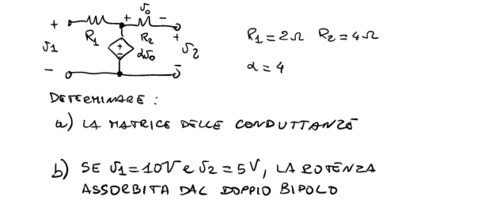 + + v₀ - +
R₁ R₂
v₁ αv₀ v₂
- -
R₁=2Ω R₂=4Ω
α=4
DETERMINARE :
a) LA MATRICE DELLE CONDUTTANZE
b) SE v₁=10V e v₂=5V, LA POTENZA
ASSORBITA DAL DOPPIO BIPOLO